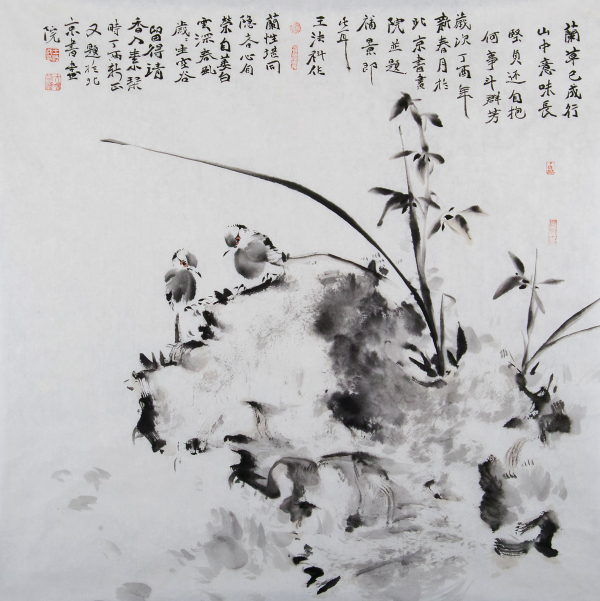 蘭草已成行
山中意味長
堅貞还自抱
何事斗群芳
歲次丁酉年
新春月於
北京書畫
院並題
補景郎
蘭性堪同
隐者心自
榮自萎白
雲深春風
歲〻生空谷
留得清
香入素琴
時丁酉新正
又題於北
京書畫
院